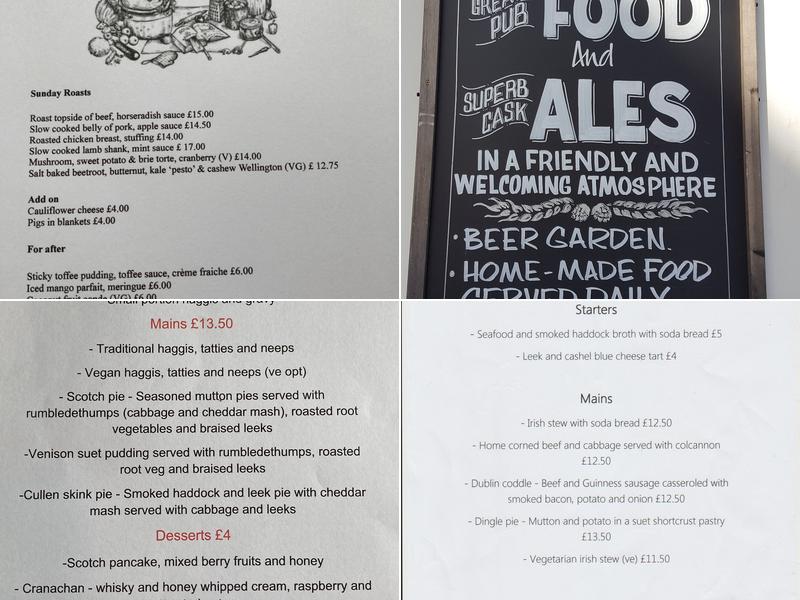 Sunday Roasts
Roast topside of beef, horseradish sauce £15.00
Slow cooked belly of pork, apple sauce £14.50
Roasted chicken breast, stuffing £14.00
Slow cooked lamb shank, mint sauce £ 17.00
Mushroom, sweet potato & brie torte, cranberry (V) £14.00
Salt baked beetroot, butternut, kale 'pesto' & cashew Wellington (VG) £ 12.75
Add on
Cauliflower cheese £4.00
Pigs in blankets £4.00
For after
Sticky toffee pudding, toffee sauce, crème fraiche £6.00
Iced mango parfait, meringue £6.00
(VG) £6.00
GREAT
PUB
FOOD
And
SUPERB
CASK
ALES
IN A FRIENDLY AND
WELCOMING ATMOSPHERE
• BEER GARDEN.
• HOME-MADE FOOD
SERVED DAILY
Small portion haggis and gravy
Mains £13.50
- Traditional haggis, tatties and neeps
- Vegan haggis, tatties and neeps (ve opt)
- Scotch pie - Seasoned mutton pies served with
rumbledethumps (cabbage and cheddar mash), roasted root
vegetables and braised leeks
-Venison suet pudding served with rumbledethumps, roasted
root veg and braised leeks
-Cullen skink pie - Smoked haddock and leek pie with cheddar
mash served with cabbage and leeks
Desserts £4
-Scotch pancake, mixed berry fruits and honey
- Cranachan - whisky and honey whipped cream, raspberry and
Starters
- Seafood and smoked haddock broth with soda bread £5
- Leek and cashel blue cheese tart £4
Mains
- Irish stew with soda bread £12.50
- Home corned beef and cabbage served with colcannon
£12.50
- Dublin coddle - Beef and Guinness sausage casseroled with
smoked bacon, potato and onion £12.50
- Dingle pie - Mutton and potato in a suet shortcrust pastry
£13.50
- Vegetarian irish stew (ve) £11.50